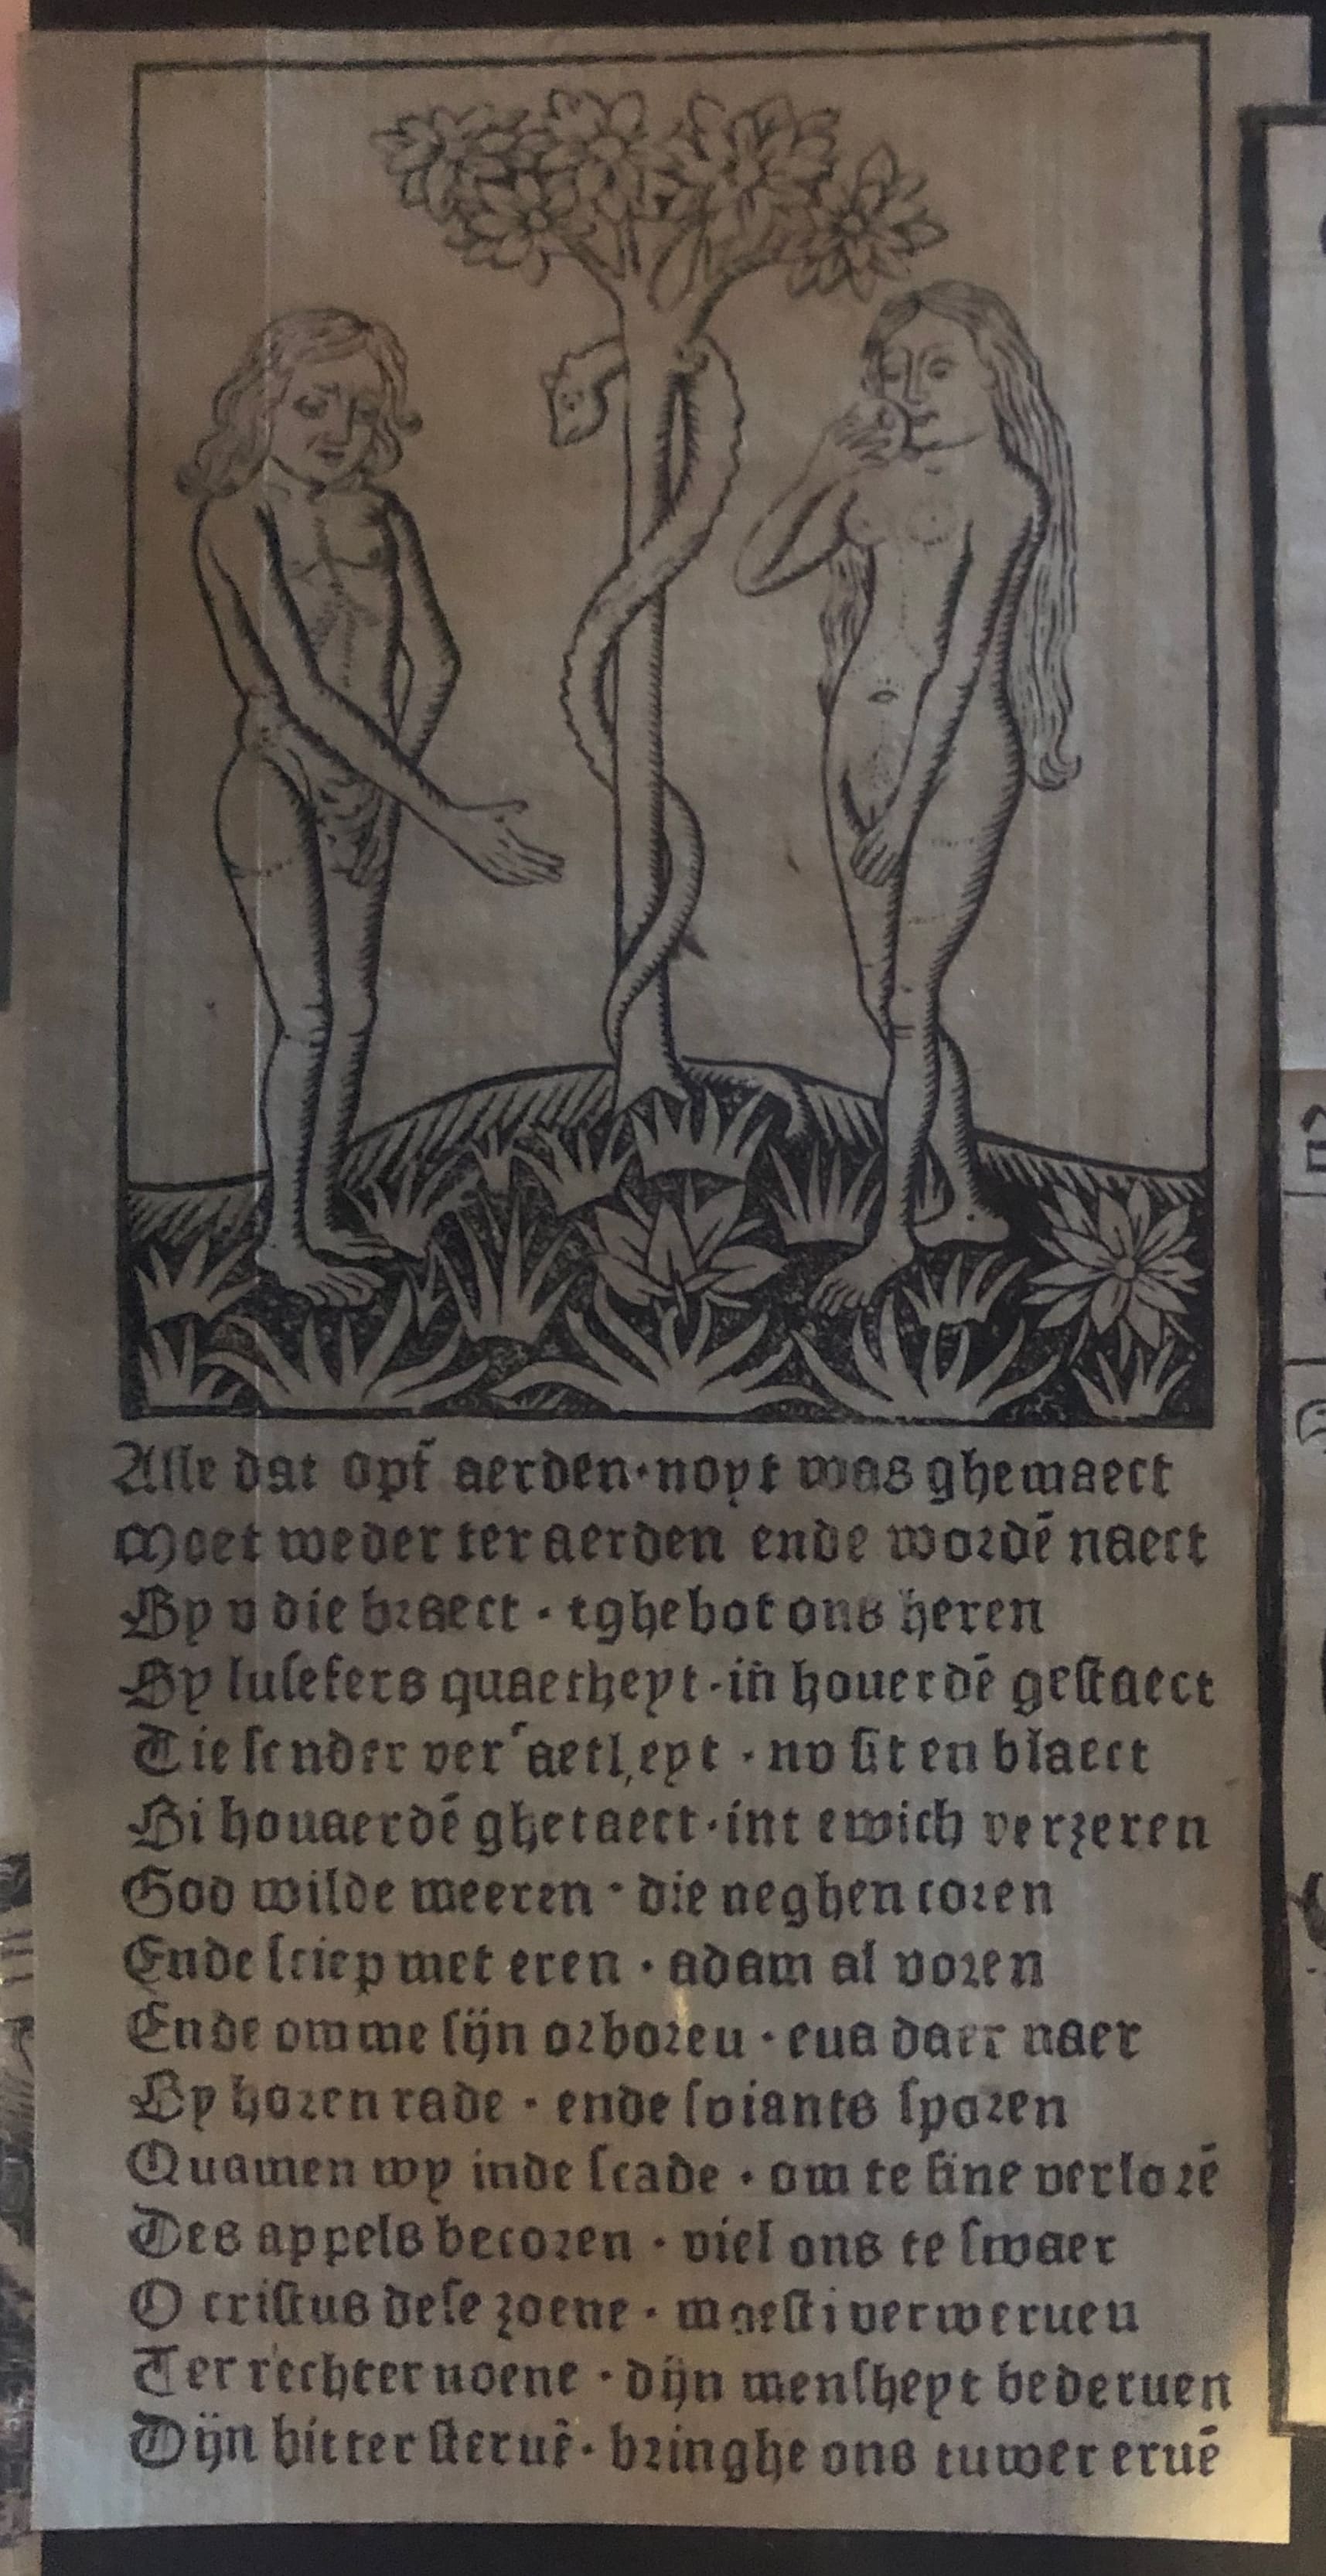 Alle dat opt̄ aerden · noyt was ghemaect
Moet weder ter aerden ende wordē naect
By v die braect · tghebot ons heren
By lusefers quaetheyt · in̄ houerdē gestaect
Die sender ver aetheyt · nv sit en blaect
Bi houaerdē ghetaect · int ewich verzeren
God wilde meeren · die neghen coren
Ende sciep met eren · adam al voren
Ende omme sijn orboreu · eua daer naer
By horen rade · ende sviants sporen
Quamen wy inde scade · om te sine verlorē
Des appels becoren · viel ons te swaer
O cristus dese zoene · moesti verweruen
Ter rechter noene · dijn mensheyt bederuen
Dijn bitter steruē · bringhe ons tuwer eruē